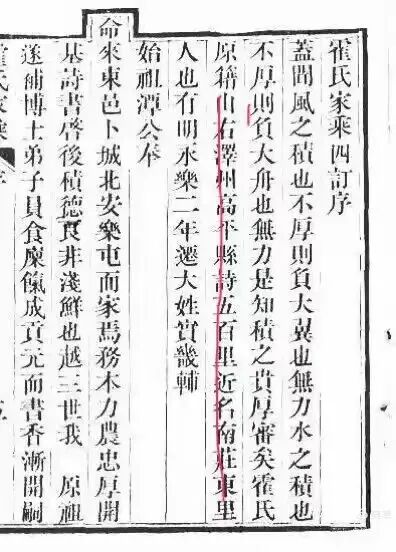 霍氏家乘四訂序
蓋聞風之積也不厚則負大翼也無力水之積也
不厚則負大舟也無力是知積之貴厚審矣霍氏
原籍山右澤州高平縣詩五百里近名南莊東里
人也有明永樂二年遷大姓實畿輔
始祖潭公奉
命來東邑卜城北安樂屯而家焉務本力農忠厚開
基詩書啓後積德良非淺鮮也越三世我 原祖
遂補博士弟子員食廩餼成貢元而書香漸開嗣
霍氏家乘